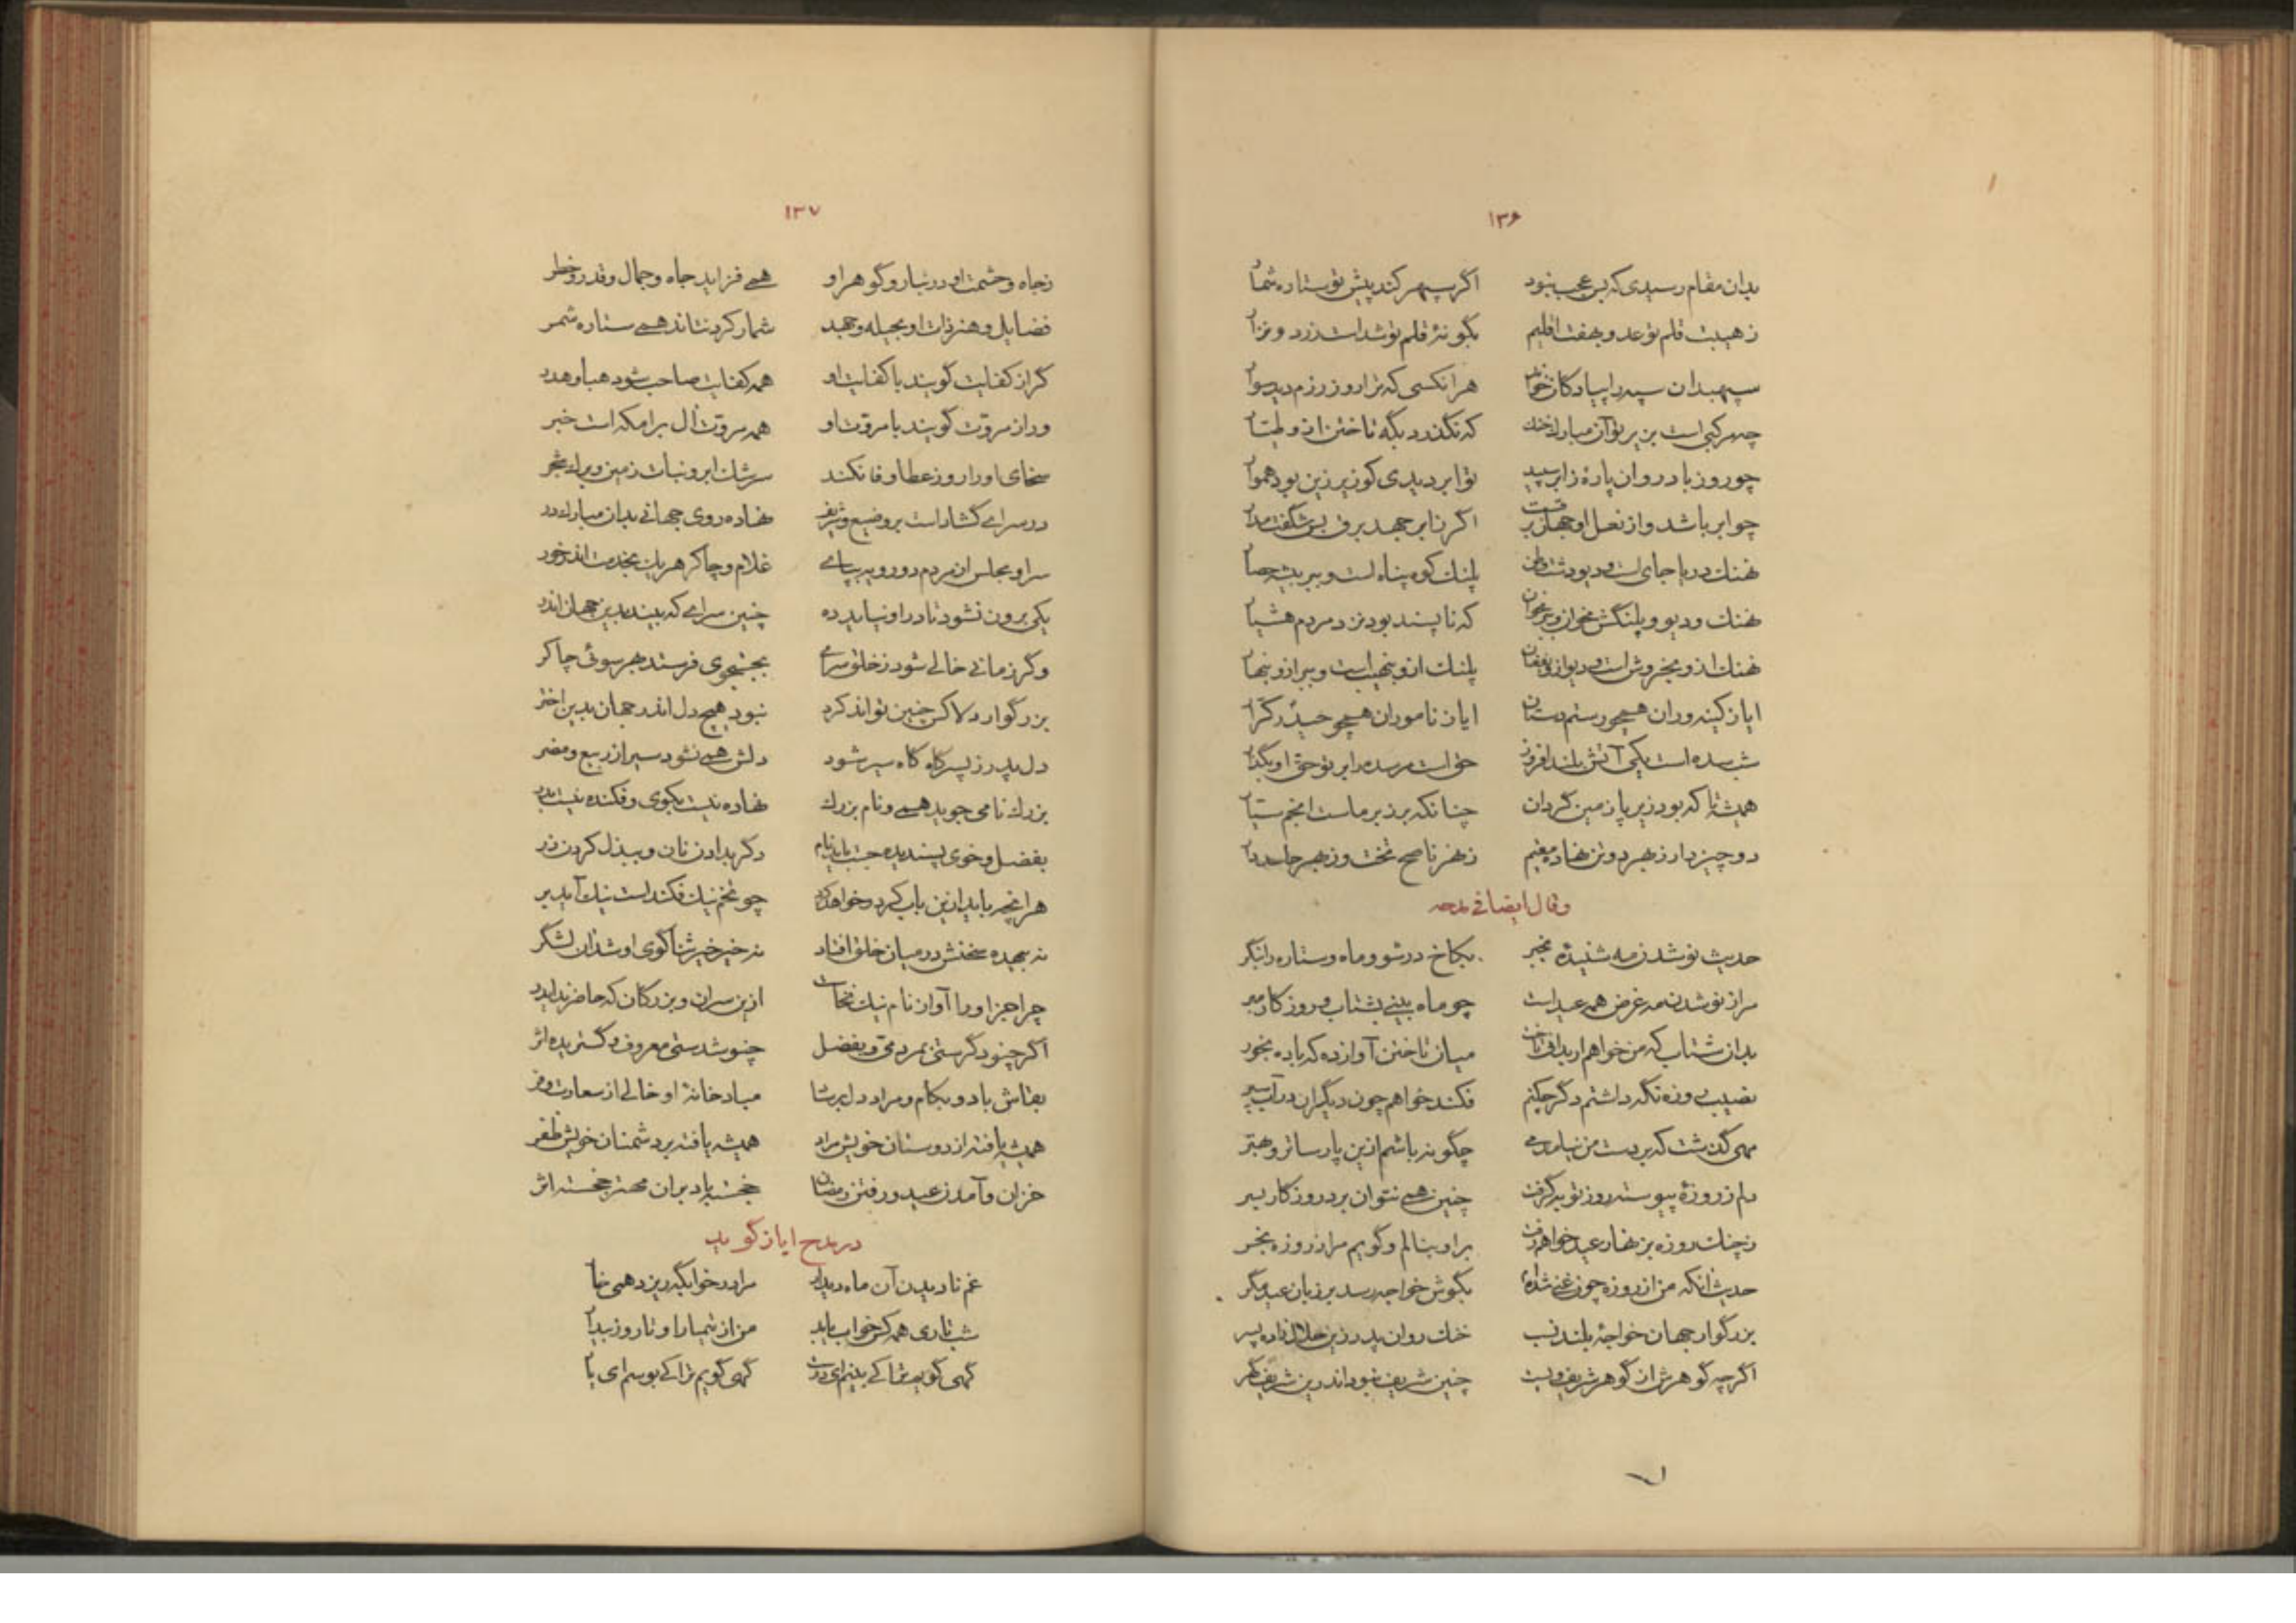 ۱۳۶
بدان مقام رسیدی که بس عجب نبود اگر سپهر کند پیش تو ستاره شمار
ز هیبت قلم تو عدو بهفت اقلیم بگونهٔ قلم تو شدست زرد و نزار
سپهبدان سپه را پیادگان خواند هر انکسی که ترا روز رزم دید سوار
چه مرکبی است بزیر تو آن مبارک خنک که نگذرد بگه تاختن ازو طیار
چو روز باد روان پارهٔ ز ابر سپید تو ابر دیدی کو زیر زین بود هموار
چو ابر باشد و از نعل او جهان برقست اگر ز ابر جهد برق بس شگفت مدار
نهنک دریا جای است و دیو دشت وطن پلنک کوه پناه است و ببر بیشه حصار
نهنک و دیو و پلنگش مخوان و ببر مخوان که ناپسند بود نزد مردم هشیار
نهنک ازو بخروش است و دیو ازو بفغان پلنک ازو بنهیب است و ببر ازو بنهار
ایا ز کینه وران همچو رستم دستان ایا ز ناموران همچو حیدر کرار
شب سده است یکی آتش بلند افروز حق است مر سده را بر تو حق او بگذار
همیشه تا که بود زیر پا زمین گردان چنانکه بر زبر ماست انجم سیار
دو چیز دار ز بهر دو تن نهاده مقیم ز بهر ناصح تخت و ز بهر حاسد دار
وقال ایضا فی مدحه
حدیث نو شدن مه شنیدهٔ بخبر بکاخ در شو و ماه و ستاره را بنگر
مرا ز نو شدن مه غرض همه عید است چو ماه بینی بشتاب و روزگار مبر
بدان شتاب که من خواهم ار بدانی تاخت میان تاختن آواز ده که باده بخور
نصیب روزه نگه داشتم دگر چکنم فکند خواهم چون دیگران بر آب سپر
مهی گذشت که بر دست من نیامد می چگونه باشم ازین پارساتر و بهتر
دلم ز روزهٔ پیوسته روز تو به گرفت چنین همی نتوان برد روزگار بسر
ز چنک روزه بزنهار عید خواهم رفت بر او بنالم و گویم مرا ز روزه بخر
حدیث انکه من از روزه چون غمی شده ام بگوش خواجه رسد بر زبان عید مگر
بزرگوار جهان خواجهٔ بلند نسب خنک روان پدر زین حلال زاده پسر
اگرچه گوهرش از گوهر شریف و یست چنین شریف نبود اندرین شریف گهر
۱۳۷
ز جاه و حشمت او در تبار و گوهر او همی فزاید جاه و جمال و قدر و خطر
فضایل و هنر ذات او بحیله و جهد شمار کرد نتاند همی ستاره شمر
گر از کفایت گویند با کفایت او همه کفایت صاحب شود هبا و هدر
ور از مروّت گویند با مروّت او همه مروّت آل برامکه است خبر
سخای او را روز عطا وفا نکند سرشک ابر و نبات زمین و برک شجر
در سرای گشاداست بر وضیع و شریف نهاده روی جهانی بدان مبارک در
سرا و مجلس از مردم دو رویه بپای غلام و چاکر هریک بخدمت اندر خور
یکی برون نشود تا در او نیاید ده چنین سرای که بیند بدین جهان اندر
وگر زمانی خالی شود ز خلق سرای بجستجوی فرستد بهر سوئی چاکر
بزرگوار دلا کو چنین تواند کرد نبود هیچ دل اندر جهان بدین اختر
دل پدر ز پسر گاه گاه سیر شود دلش همی نشود سیر از ربیع و مضر
بزرک نامی جوید همی و نام بزرک نهاده نیست بکوی و فکنده نیست بدر
بفضل و خوی پسندیده جست باید نام دگر بدادن نان و ببذل کردن زر
هر انچه باید ازین باب کرد و خواهد کرد چو تخم نیک فکند است نیک آید بر
نه بیهده سخنش در میان خلق افتاد نه خیر خیر ثناگوی او شد آن لشگر
چرا جز او را آواز نام نیک نخاست ازین سران و بزرگان که حاضرند ایدر
اگر چنو دگرستی بمردمی و بفضل چنو شدستی معروف و گستریده اثر
بقاش باد و بکام و مراد دل برساد مباد خانهٔ او خالی از سعادت و فر
همیشه یافته از دوستان خویش مراد همیشه یافته بر دشمنان خویش ظفر
خزان و آمدن عید و رفتن رمضان خجسته باد بران مهتر خجسته اثر
در مدح ایاز گوید
غم نادیدن آن ماه دیدار مرا در خوابگه ریزد همی خار
شب تاری همه کس خواب یابد من از تیمار او تا روز بیدار
گهی گویم ترا کی بینم ای دوست گهی گویم ترا کی بوسم ای یار